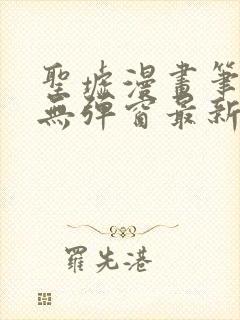 聖墟漫畫筆
無彈窗最新
羅先港